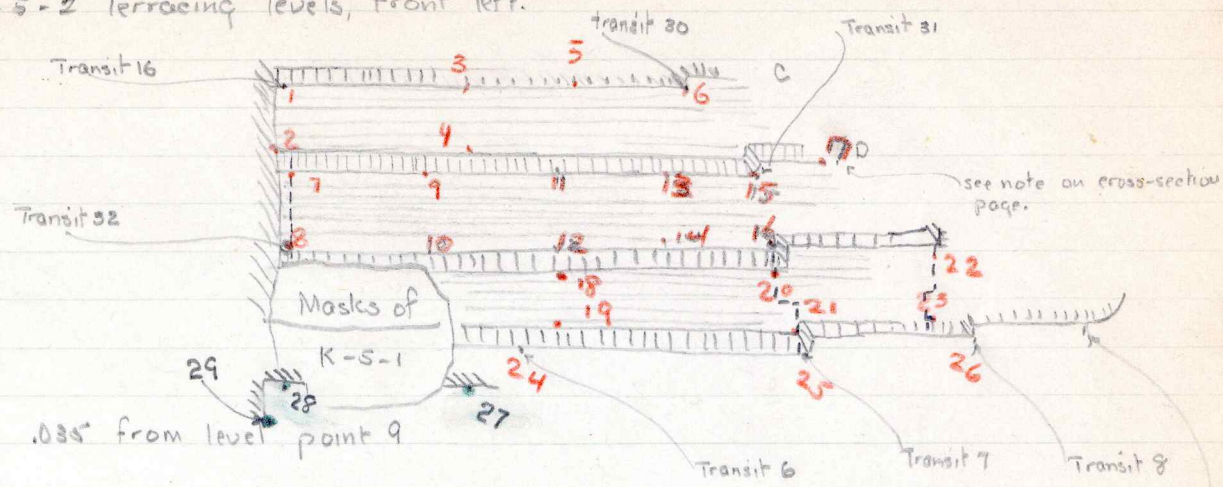 5-2 Terracing levels, front left.
transit 30
Transit 31
Transit 16
3
5
1
6
C
2
4
7 D
7
9
11
13
15
see note on cross-section
page.
Transit 32
8
10
12
14
16
22
18
20
Masks of
K-5-1
19
21
23
24
25
26
29
28
27
.035 from level point 9
Transit 6
Transit 7
Transit 8